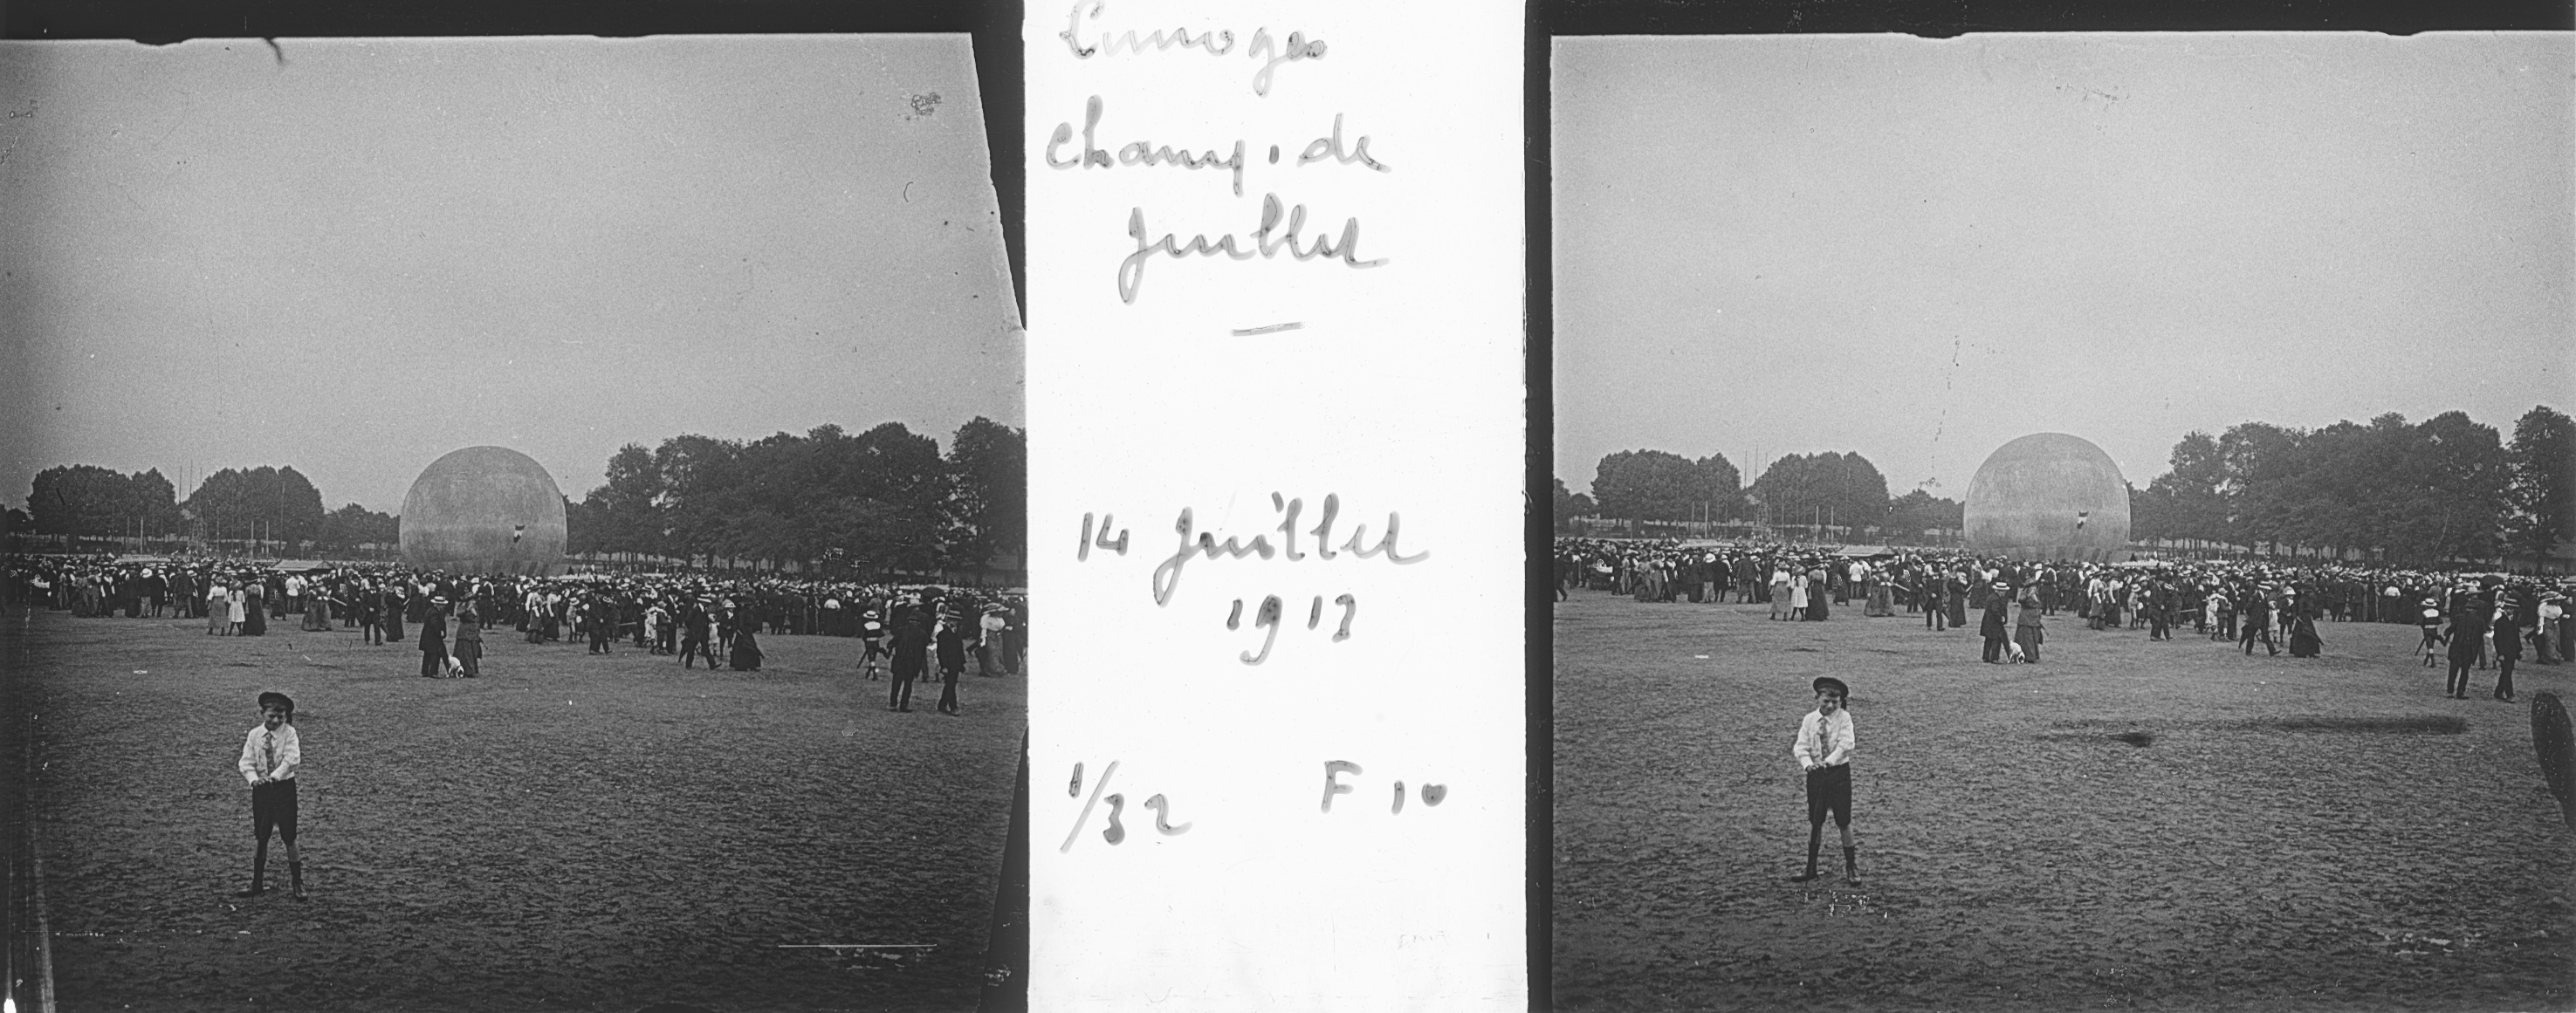 Limoges
Champ. de
Juillet
14 Juillet
1912
1/32 F 10